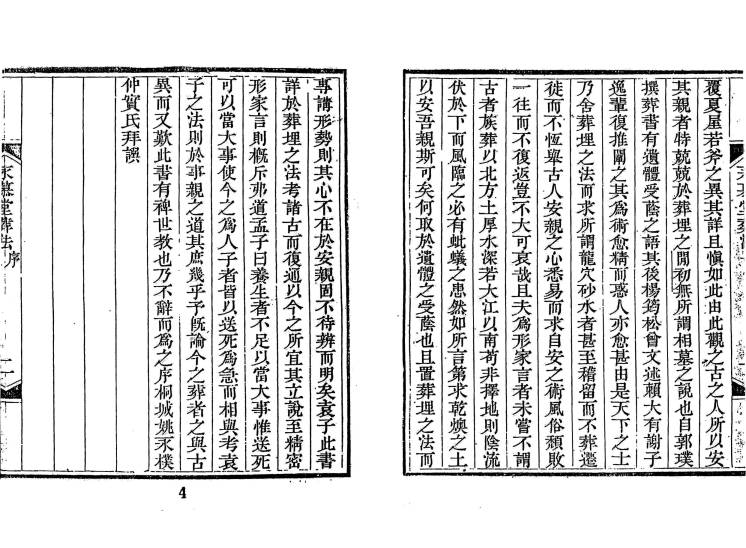 覆夏屋若斧之異其詳且愼如此由此觀之古之人所以安
其親者特兢兢於葬埋之閒初無所謂相墓之說也自郭璞
撰葬書有遺體受蔭之語其後楊筠松曾文辿賴大有謝子
逸輩復推闡之其爲術愈精而惑人亦愈甚由是天下之士
乃舍葬埋之法而求所謂龍穴砂水者甚至稽留而不葬遷
徙而不恆舉古人安親之心悉易而求自安之術風俗頹敗
一往而不復返豈不大可哀哉且夫爲形家言者未嘗不謂
古者族葬以北方土厚水深若大江以南苟非擇地則陰流
伏於下而風臨之必有蚍蟻之患然如所言第求乾燠之土
以安吾親斯可矣何取於遺體之受蔭也且置葬埋之法而
事講形勢則其心不在於安親固不待辨而明矣袁子此書
詳於葬埋之法考諸古而復通以今之所宜其立說至精密
形家言則概斥弗道孟子曰養生者不足以當大事惟送死
可以當大事使今之爲人子者皆以送死爲急而相與考袁
子之法則於事親之道其庶幾乎予旣論今之葬者之與古
異而又歎此書有裨世教也乃不辭而爲之序桐城姚永樸
仲實氏拜譔
永慕堂葬法序
4